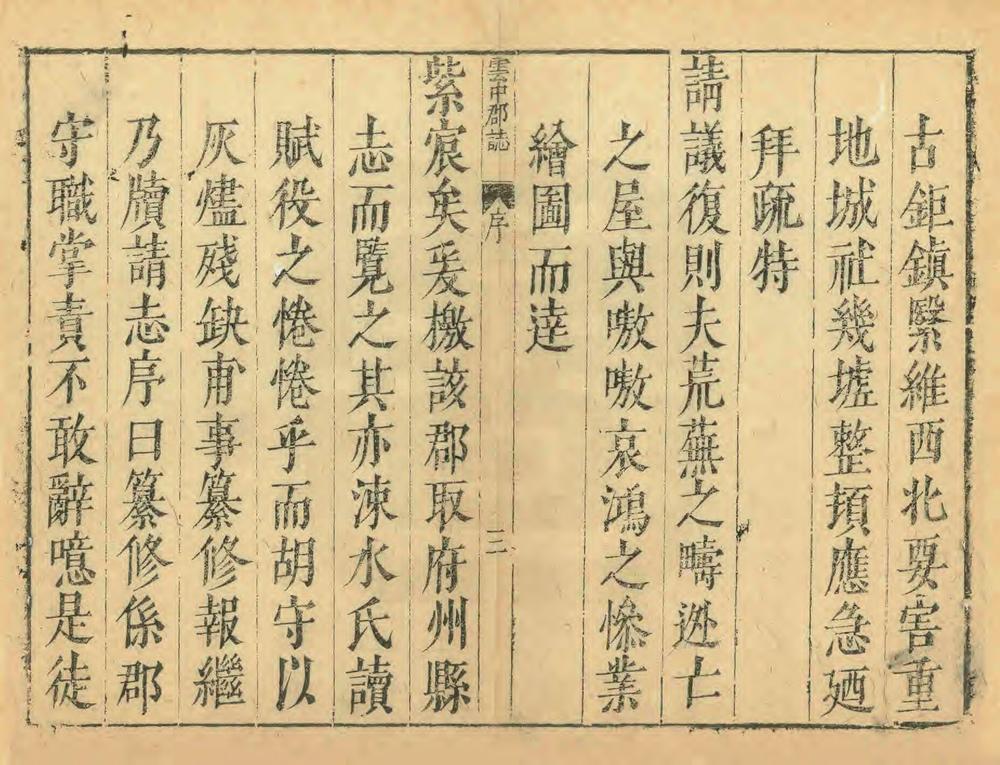 古鉅鎮繄維西北要害重
地城社幾墟整頓應急廼
拜疏特
請議復則夫荒蕪之疇逃亡
之屋與嗷嗷哀鴻之慘業
繪圖而達
雲中郡誌
序
三
紫宸矣爰檄該郡取府州縣
志而覽之其亦涑水氏讀
賦役之惓惓乎而胡守以
灰燼殘缺甫事纂修報繼
乃牘請志序曰纂修係郡
守職掌責不敢辭噫是徒